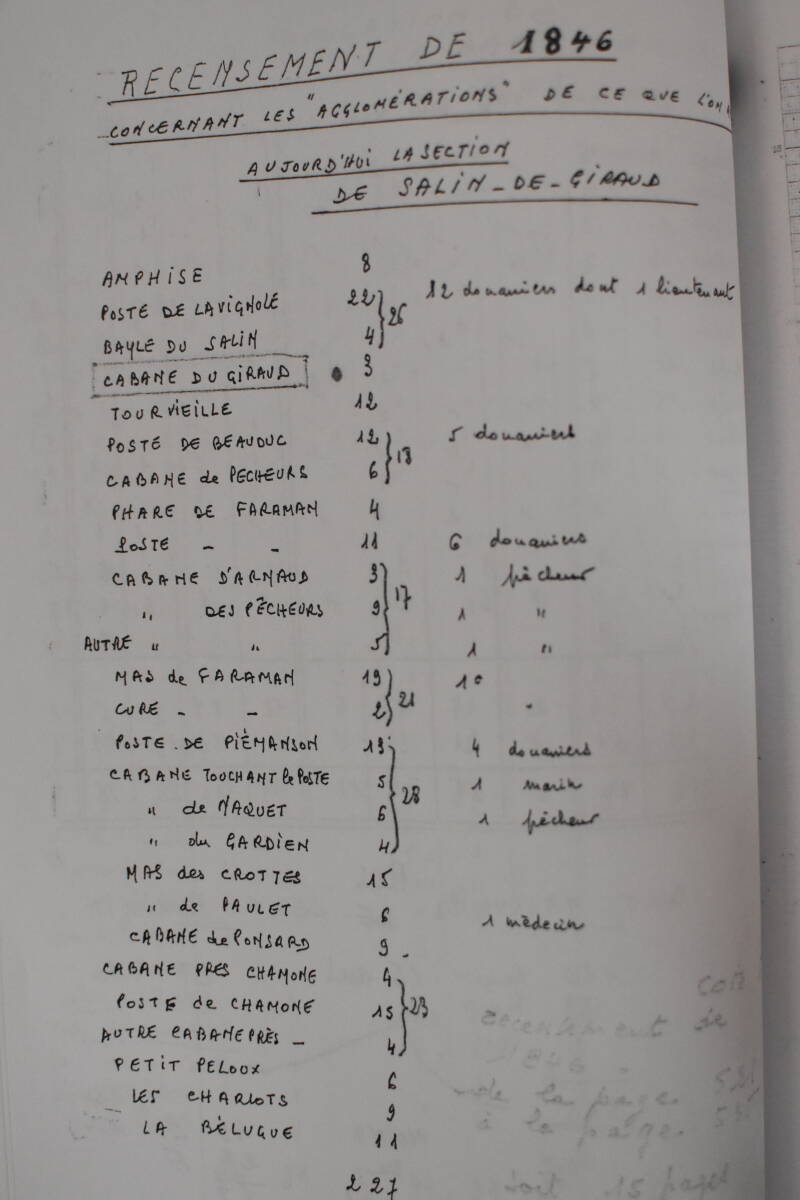 RECENSEMENT DE 1846
CONCERNANT LES "AGGLOMÉRATIONS" DE CE QUE L'ON
AUJOURD'HUI LA SECTION
DE SALIN-DE-GIRAUD
AMPHISE 8
POSTE DE LA VIGNOLE 22 12 douaniers dont 1 lieutenant
26
BAYLE DU SALIN 4
CABANE DU GIRAUD 3
TOURVIEILLE 12
POSTE DE BEAUDUC 12 5 douaniers
18
CABANE de PECHEURS 6
PHARE DE FARAMAN 4
POSTE - - 11 6 douaniers
CABANE D'ARNAUD 3 1 pêcheur
17
" DES PÊCHEURS 9 1 "
AUTRE " " 5 1 "
MAS de FARAMAN 19
21
CURE - - 2
POSTE DE PIÈMANSON 13 4 douaniers
CABANE TOUCHANT le POSTE 5 1 marin
28
" de NAQUET 6 1 pêcheur
" du GARDIEN 4
MAS des CROTTES 15
" de PAULET 6 1 mèdecin
CABANE de PONSARD 9
CABANE PRES CHAMONE 4
POSTE de CHAMONE 15
23
AUTRE CABANE PRÈS - 4
PETIT PELOUX 6
LES CHARLOTS 9
LA BÈLUGUE 11
227